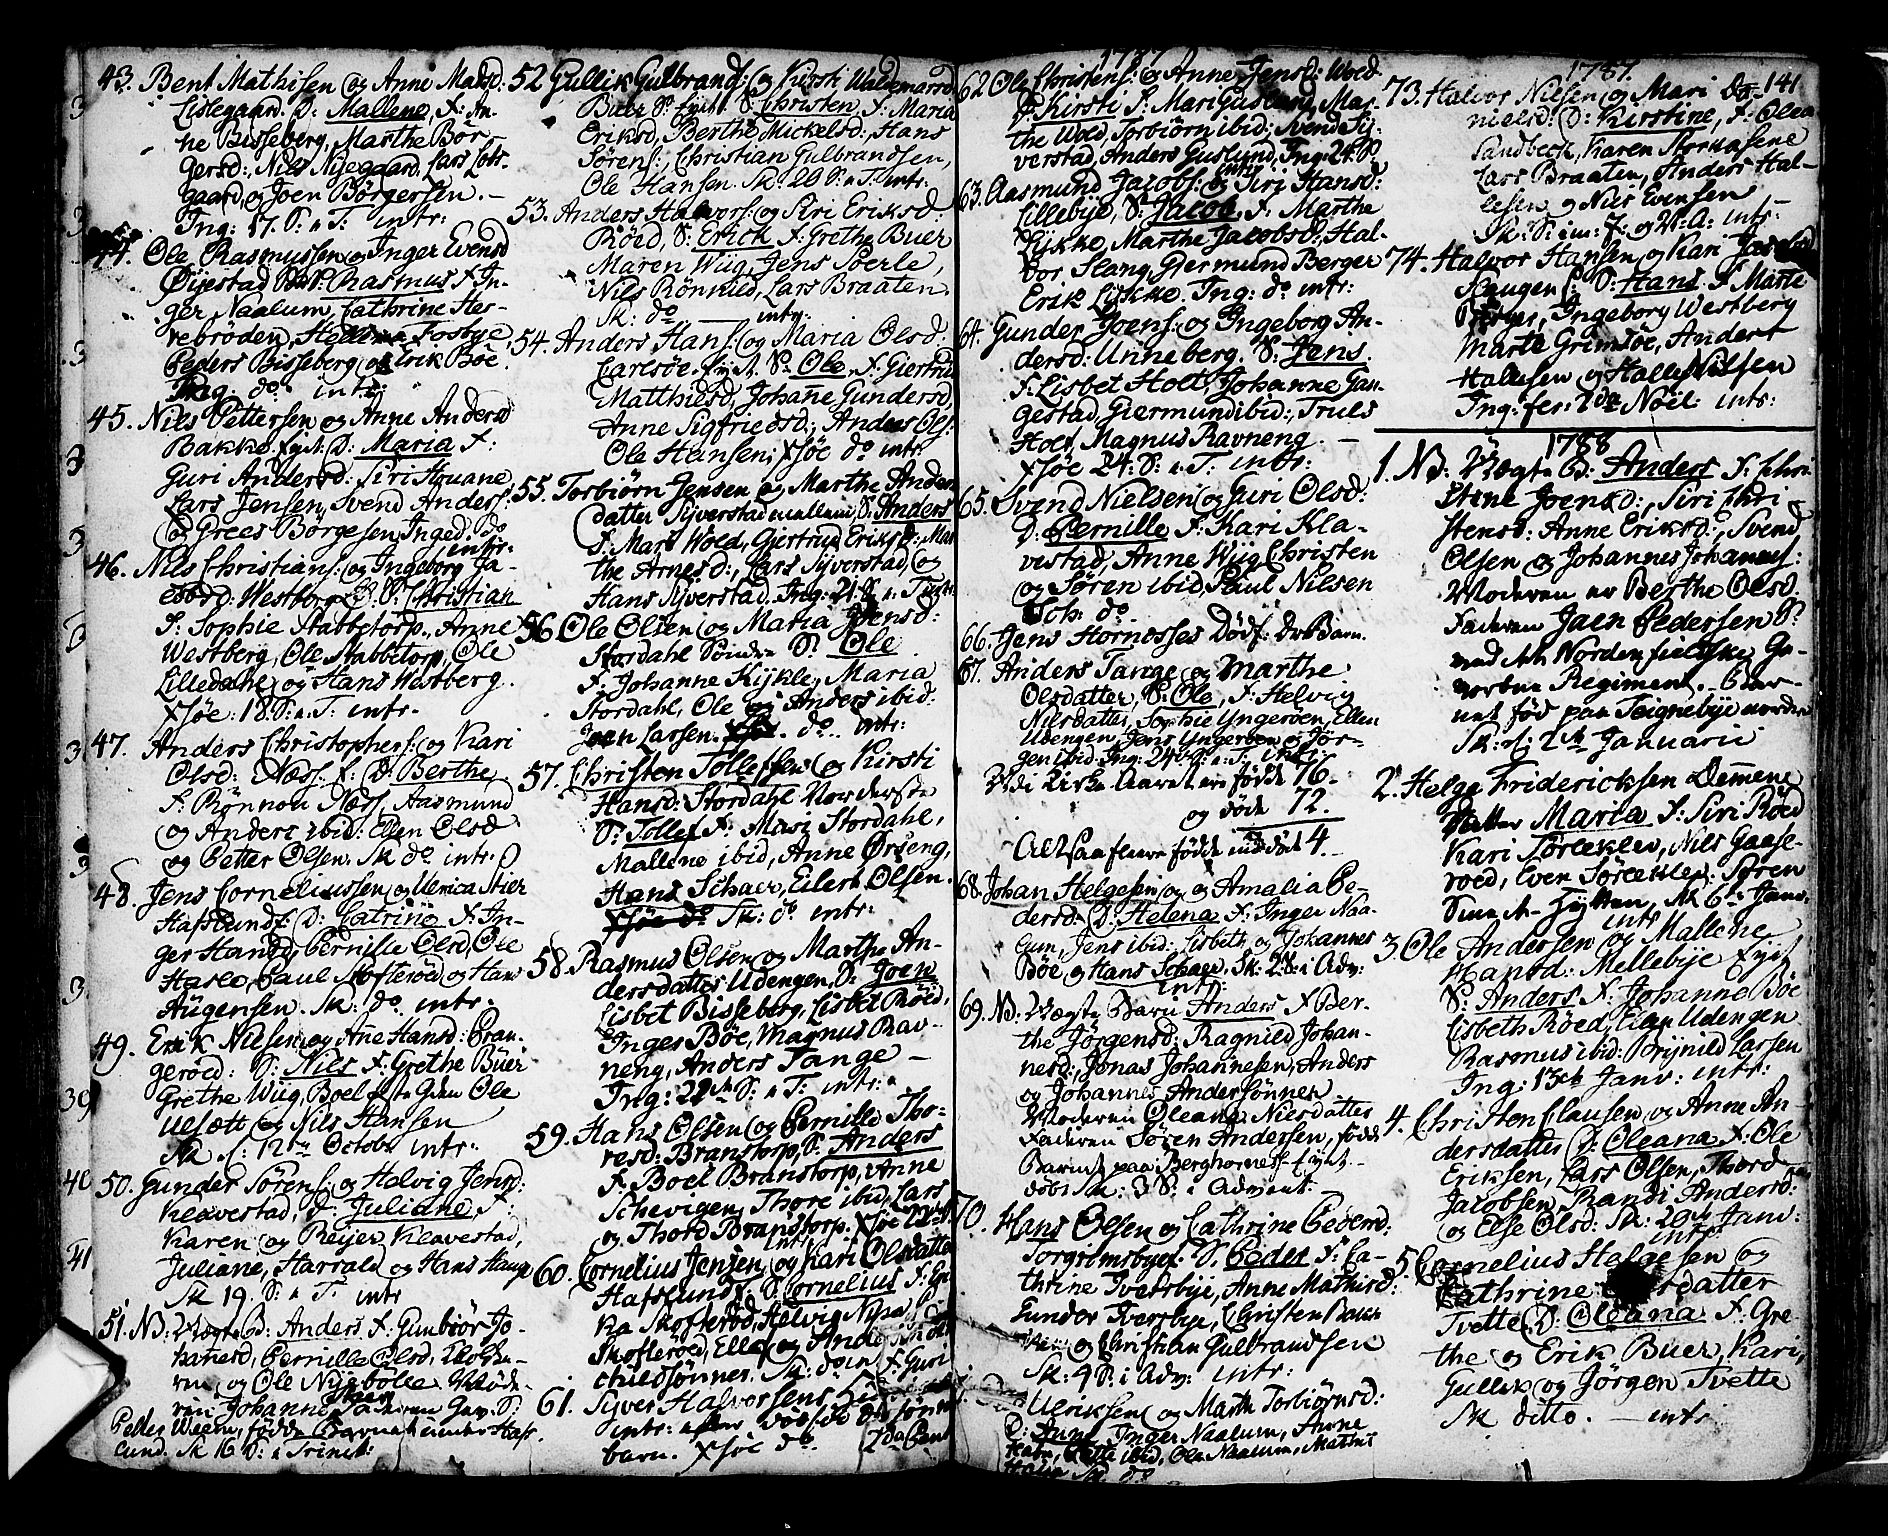 43. Bent Mathisen og Anne Madsd:
Lislegaard. D: Mallene, F: An-
ne Bisseberg, Marthe Bör-
gersd: Nils Nyegaard, Lars
gaard, og Joen Börgersen. –
Ing: 17. S: a T: intr:
44. Ole Rasmussen og Inger Evensd
Öyestad S: Rasmus F: In-
ger Naalum, Cathrine Her-
rebröden, Hellena Fosbye,
Peders Bisseberg og Erik Böe
Ing: do intr:
45. Nils Pettersen og Anne Andersd
Bakke. D: Maria F:
Guri Andersd: Siri
Lars Jensen, Svend Anders:
og Grees Börgesen, Inged: do
intr:
46. Nils Christians: og Ingeborg Ja-
cobsd: Westberg S: Christian
F: Sophie Stabbetorp, Anne
Westberg, Ole Stabbetorp, Ole
Lilledahl, og Hans Westberg.
18. S: a T: intr.
47. Anders Christophers: og Kari
Olsd: Næss. D: Berthe,
F: Rönnou Næss, Aasmund
og Anders ibid: Ellen Olsd
og Petter Olsen. Sk do. intr:
48. Jens Corneliussen og Ulrica Stier
Hafslund: D: Catrine F: In-
ger Pernille Olsd, Ole
Hasle, Paul Skofteröd og Hans
Augensen. Sk: do. intr.
49. Erik Nielsen og Ane Hansd: Gran-
geröed: S: Nils F: Grethe Buer
Grethe Wiig, Boel Ole
og Nils Hansen
Sk 12te Octobr intr:
50. Gunder Sörens: og Helvig Jensd:
Klavestad, D: Juliane, F:
Karen og Reyer Klavestad,
Juliane, Harrald og Hans Hauge
Sk 19. S: a T: intr
51. NB: Uægte B: Anders F: Gunbiör Jo-
hanesd, Pernille Olsd,
og Ole Nygbölle. Mode-
ren Johanne Faderen
Peder Wiem, födde Barnet under Hafs
lund. Sk 16 S: a Trinit:
52 Gullik Gulbrands: og Kirsti Waldemarsd
Buer S: Christen, F: Maria
Eriksd, Berthe Mickelsd, Hans
Sörens:, Christian Gulbrandsen,
Ole Hansen. Sk. 20 S: a T: intr.
53. Anders Halvors: og Siri Eriksd:
Röed, S: Erick F: Grethe Buer
Maren Wiig, Jens Sperle,
Nils Rönnild, Lars Braaten.
Sk: do — intr:
54. Anders Hans: og Maria Olsd:
Carlsöe. S: Ole, F: Giertrud
Matthisd, Johane Gundersd
Anne Sigfriedsd, Anders Ols:
Ole Hansen, do intr:
55. Torbiörn Jensen og Marthe Anders
datter Syverstad mellem, S: Anders
F: Mari Wold, Giertrud Eriksd: Mar
the Arnesd:, Lars Syverstad, og
Hans Syverstad. Ing: 21. S: a T: intr:
56. Ole Olsen og Maria Jensd:
Stordahl Söndre S: Ole
F: Johanne Kykle, Maria
Stordahl, Ole og Anders ibid:
Joen Larsen. do. intr:
57. Christen Tollefsen og Kirsti
Hansd: Stordahl Norderste
S: Tollef F: Mari Stordahl,
Mallene ibid, Anne Örseng,
Hans Schaer, Eilert Olsen.
Sk: do intr:
58. Rasmus Olsen og Marthe An-
dersdatter Udengen, D: Joen
Lisbet Bisseberg, Lisbet Röed,
Inger Böe, Magnus Rav-
neng, Anders Tange –
Ing: 22de S: a T: intr:
59. Hans Olsen og Pernille Tho-
resd: Branstorp, S: Anders
F: Boel Branstorp, Anne
Schevigen, Thore ibid, Lars
og Thord Branstorp.
intr:
60. Cornelius Jensen og Kari Olsdatter
Hafslund: S: Cornelius F:
Skofteröd, Helvig
Skofteröd, Elle og Anders
childsönner. Sk: do in F: Guri
61. Syver Halvorsens
intr:
barn. do 2da Pent
1787
62 Ole Christens: og Anne Jensd: Wold
D: Kirsti F: Mari Guslund, Mar-
the Wold, Torbiörn ibid; Svend Sy-
verstad, Anders Guslund, Ing: 24. S.
intr
63. Aasmund Jacobs: og Siri Hansd:
Lillebye, S: Jacob, F: Marthe
Lykke, Marthe Jacobsd:, Hal-
vor Slang, Giermund Berger
Erik Lykke. Ing: do intr:
64. Gunder Joens: og Ingeborg An-
dersd: Unneberg. S: Jens.
F: Lisbet Holt, Johanne Gan-
gestad, Giermund ibid:, Truls
Holt, Magnus Ravneng. –
24: S: a T: intr:
65. Svend Nielsen og Guri Olsd:
D: Pernille F: Kari Kla-
vestad, Anne Wiig, Christen
og Sören ibid, Paul Nilsen
do.
66. Jens Hornesses Dödf: Dr Barn.
67. Anders Tange og Marthe
Olsdatter, S: Ole, F: Helvig
Nilsdatter, Sophie Yngeröen, Ellen
Udengen, Jens Yngeröen og Jör-
gen ibid. Ing: 24de S: a T: intr
Udi Kirke Aaret ere födde 76.
og döde 72.
Altsaa flere födde end döde 4.
68. Johan Helgesen og Amalia Pe-
dersd: D: Helena F: Inger Naa-
lum, Jens ibid: Lisbeth og Johannes
Böe og Hans Schaer. Sk: 2 S: i Adv:
intr:
69. NB: Uægte Barn Anders F: Ber-
the Jörgensd: Ragnild Johan-
nesd:, Jonas Johannesen, Anders
og Johannes Andersönner
Moderen Oleana Nielsdatter
Faderen Sören Andersen, födde
Barnet paa Berghornes
döbt Sk: 3 S: i Advent. –
70. Hans Olsen og Cathrine Pedersd:
Torgrimsbye: S: Peder F: Ca-
thrine Tvetterbye, Anne Mathisd:
Gunder Tverbye, Christen Bakk
og Christian Gulbrandsen
Sk: 4 S: i Adv: intr:
Ulriksen og Marth Torbiörnsd:
D: Anne Inger Naalum, Anne
ibid, Ole Naalum, Mathis
Sk do
1787.
141
73. Halvor Nilsen og Mari Da-
nielsd: D: Kirstine, F: Olea
Sandbeck, Karen Storaasene
Lars Braaten, Anders Hal-
lesen og Nils Evensen
Sk: S: im: J: og N: A: intr:
74. Halvor Hansen og Kari
Haugen S: Hans F: Marte
Berger, Ingeborg Westberg
Marte Grimsöe, Anders
Hallesen og Halle Nilsen
Ing: fer: 2da Noel: intr:
1788
1. NB: Uægte B: Anders F: Chri-
stine Joensd:, Siri Chri-
stensd: Anne Eriksd:, Svend
Olsen og Johannes Johannes:
Moderen er Berthe Olsd.
Faderen Joen Pedersen S.
ved det Nordenfieldske Ge-
vorbne Regiment. Bar-
net föd paa Teignebye nordre
Sk: 2de Januarii
2. Helge Fridericksen Demene
Datter Maria F: Siri Röed
Kari Törcklev, Nils Gaase-
röed, Even Törcklev: Sören
Sk 6te Janv.
intr
3. Ole Andersen og Mallene
Hansd: Mellebye
S: Anders F: Johanne Böe
Lisbeth Röed, Elen Udengen
Rasmus ibid: Brynild Larsen
Ing: 13de Janv: intr:
4. Christen Clausen og Anne An-
dersdatter, D: Oleana F: Ole
Eriksen, Lars Olsen, Thord
Jacobsen, Randi Andersd:
og Else Olsd: Sk: 20de Janv:
intr:
5. Cornelius Helgesen og
Cathrine datter
Tvette, D: Oleana F: Gre
the og Erik Buer, Kari,
Gullik og Jörgen Tvette
Sk ditto. – intr